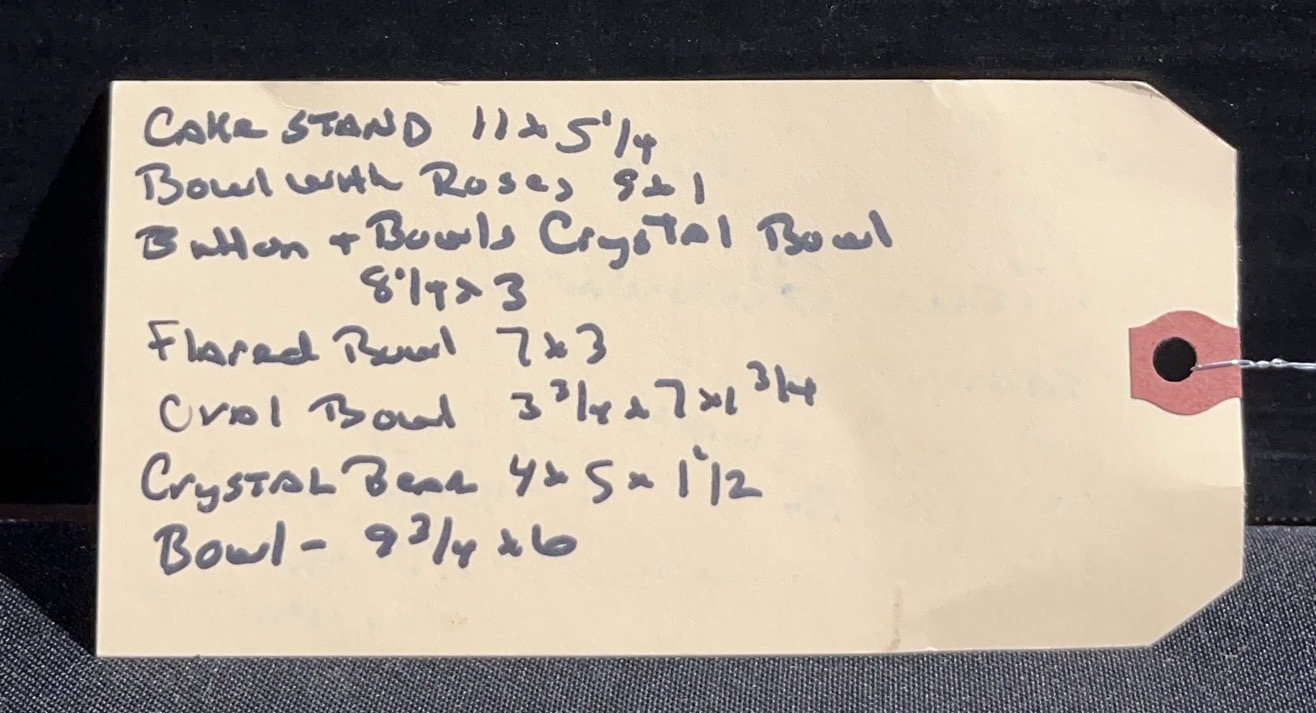 CAKE STAND 11 x 5 1/4
Bowl with Roses 9 x 1
Button + Bowls Crystal Bowl
8 1/4 x 3
Flared Bowl 7 x 3
Oval Bowl 3 3/4 x 7 x 1 3/4
CrySTAL Bear 4 x 5 x 1 1/2
Bowl - 9 3/4 x 6